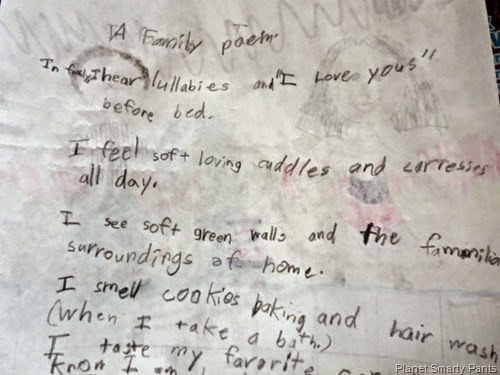 A Family poem.
In family I hear "lullabies and "I Love yous"
before bed.
I feel soft loving cuddles and carresses
all day.
I see soft green walls and the
surroundings of home.
I smell cookies baking and hair wash
(when I take a bath.)
I taste my favorite
from I am
Planet Smarty Pants